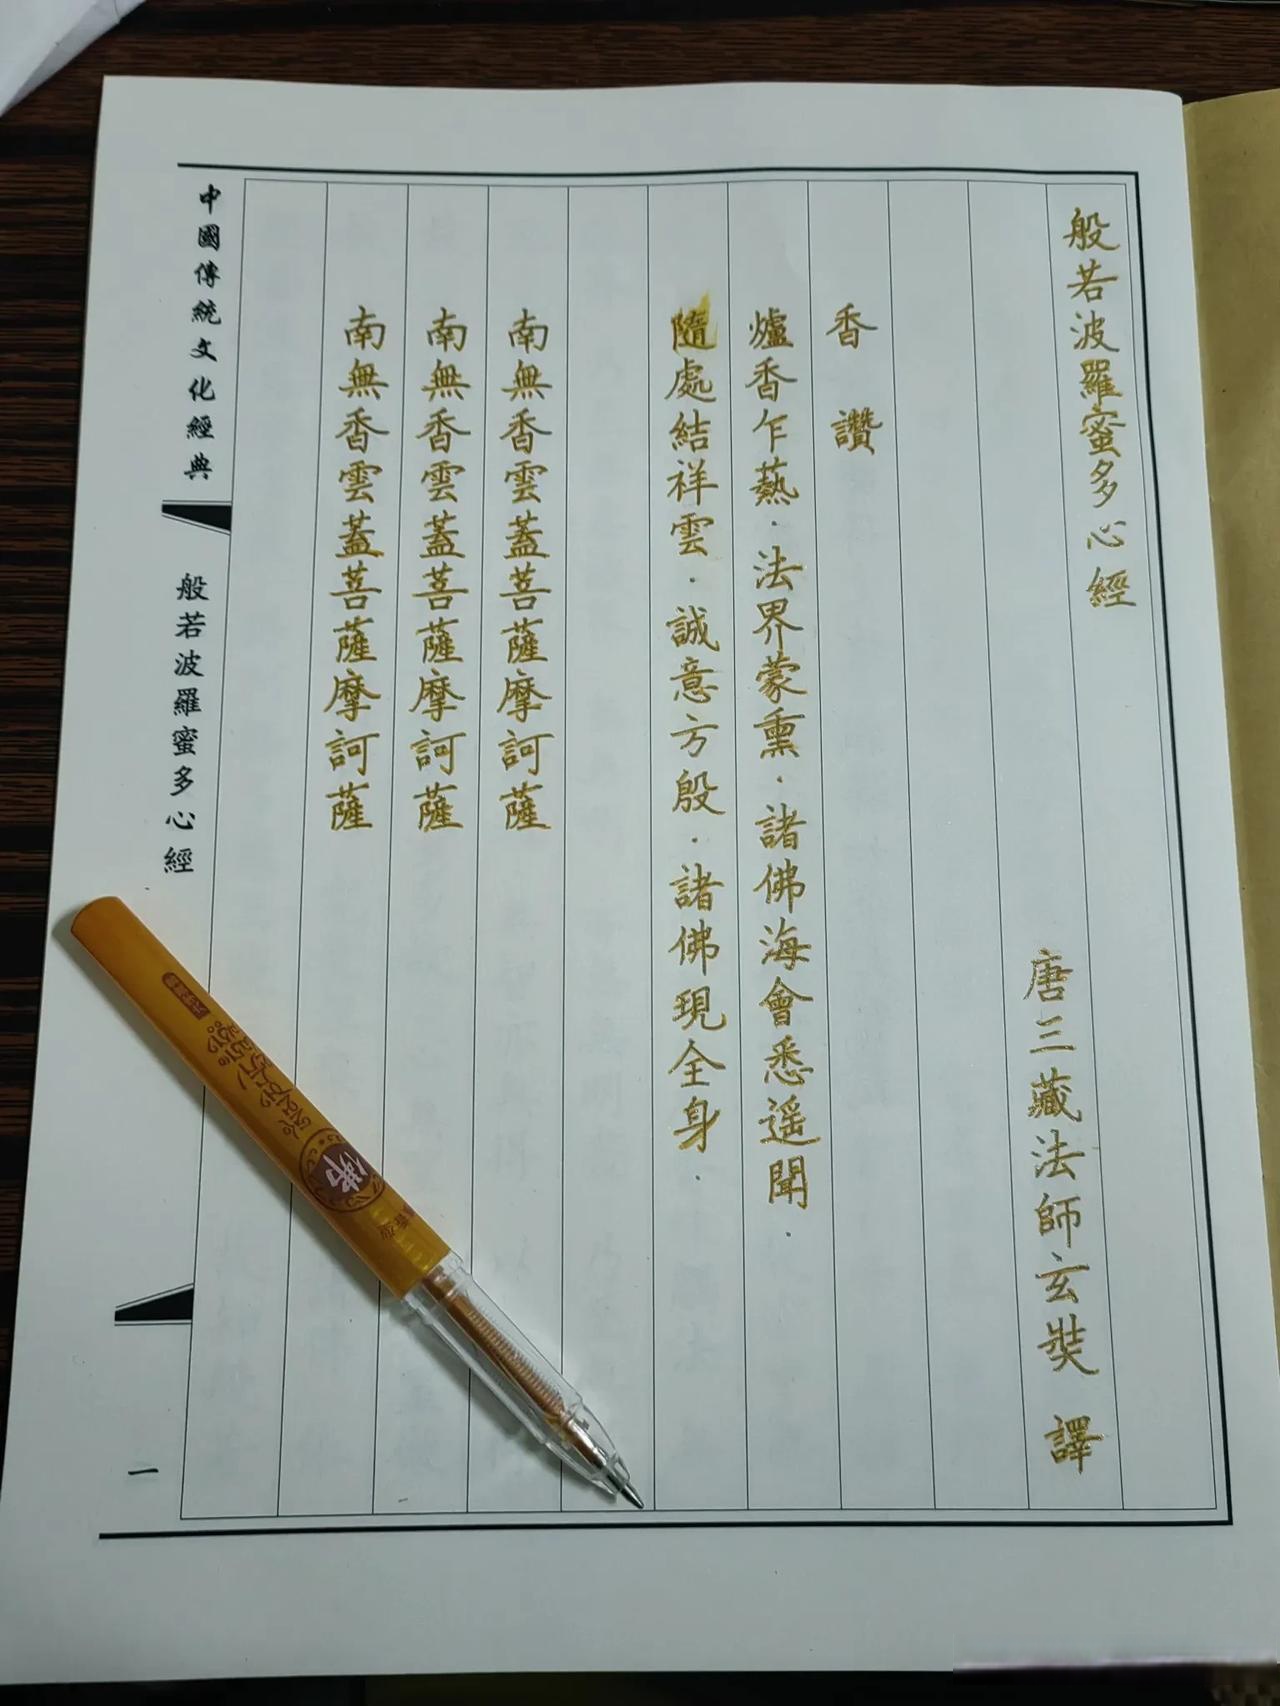 般若波羅蜜多心經
唐三藏法師玄奘 譯
香 讚
爐香乍爇．法界蒙熏．諸佛海會悉遙聞．
隨處結祥雲．誠意方殷．諸佛現全身．
南無香雲蓋菩薩摩訶薩
南無香雲蓋菩薩摩訶薩
南無香雲蓋菩薩摩訶薩
中國傳統文化經典
般若波羅蜜多心經
一
佛